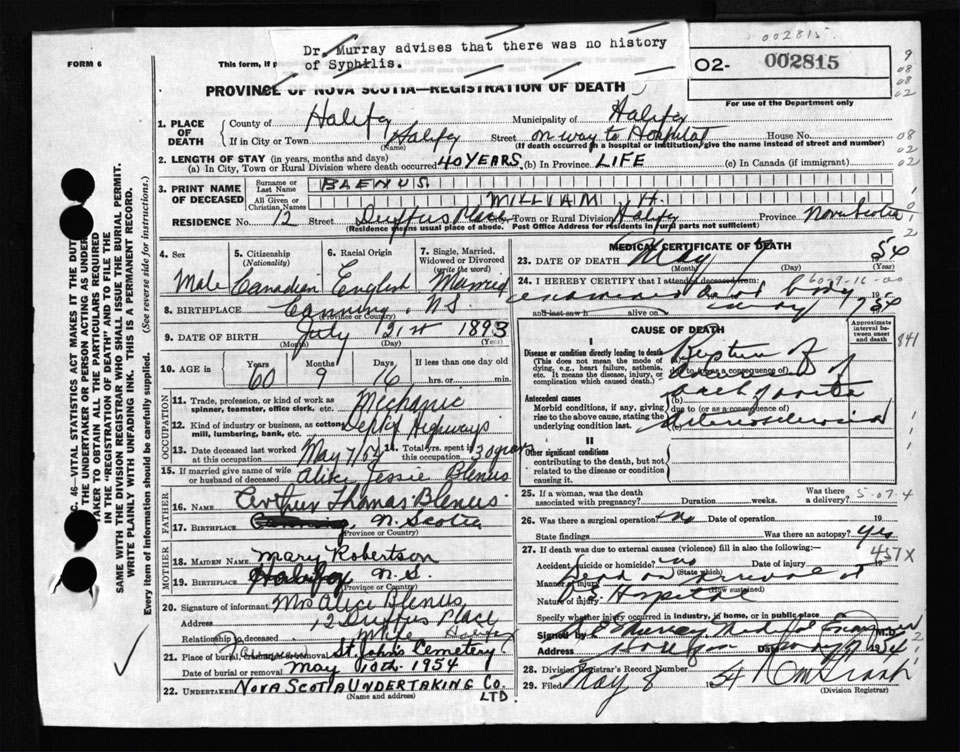 002815
Dr. Murray advises that there was no history
of Syphilis.
FORM 6
This form, if p
O2- 002815
For use of the Department only
PROVINCE OF NOVA SCOTIA—REGISTRATION OF DEATH
1. PLACE OF DEATH
County of Halifax Municipality of Halifax
If in City or Town Halifax (Name) Street on way to Hospital House No.
(If death occurred in a hospital or institution, give the name instead of street and number)
2. LENGTH OF STAY (in years, months and days)
(a) In City, Town or Rural Division where death occurred 40 YEARS (b) In Province LIFE (c) In Canada (if immigrant)
3. PRINT NAME OF DECEASED
Surname or Last Name BLENUS
All Given or Christian Names WILLIAM H.
RESIDENCE No. 12 Street Duffus Place City, Town or Rural Division Halifax Province Nova Scotia
(Residence means usual place of abode. Post Office Address for residents in rural parts not sufficient)
4. Sex Male
5. Citizenship (Nationality) Canadian
6. Racial Origin English
7. Single, Married, Widowed or Divorced (write the word) Married
8. BIRTHPLACE Canning, N.S. (Province or Country)
9. DATE OF BIRTH July 21st 1893
(Month) (Day) (Year)
10. AGE in Years 60 Months 9 Days 16 If less than one day old
hrs. or min.
OCCUPATION
11. Trade, profession, or kind of work as spinner, teamster, office clerk, etc. Mechanic
12. Kind of industry or business, as cotton mill, lumbering, bank, etc. Dept of Highways
13. Date deceased last worked at this occupation May 7/54 14. Total yrs. spent in this occupation 30 years
15. If married give name of wife or husband of deceased Alice Jessie Blenus
FATHER
16. Name Arthur Thomas Blenus
17. Birthplace Canning, N. Scotia
(Province or Country)
MOTHER
18. MAIDEN NAME Mary Robertson
19. BIRTHPLACE Halifax N.S.
(Province or Country)
20. Signature of informant Mrs Alice Blenus
Address 12 Duffus Place
Relationship to deceased Wife Halifax
21. Place of burial, cremation or removal St. Johns Cemetery
Date of burial or removal May 10th 1954
22. UNDERTAKER NOVA SCOTIA UNDERTAKING CO. LTD.
(Name and address)
MEDICAL CERTIFICATE OF DEATH
23. DATE OF DEATH May 7 54
(Month) (Day) (Year)
24. I HEREBY CERTIFY that I attended deceased from:
examined dead body
and last saw h alive on
CAUSE OF DEATH
Approximate interval between onset and death
I
Disease or condition directly leading to death
(This does not mean the mode of dying, e.g., heart failure, asthenia, etc. It means the disease, injury, or complication which caused death.)
(a) Rupture of
due to (or as a consequence of)
Antecedent causes
Morbid conditions, if any, giving rise to the above cause, stating the underlying condition last.
(b) arch of aorta
due to (or as a consequence of)
(c) Arteriosclerosis
II
Other significant conditions
contributing to the death, but not related to the disease or condition causing it.
25. If a woman, was the death associated with pregnancy? Duration weeks. Was there a delivery?
5-07.4
26. Was there a surgical operation? no Date of operation 19
State findings Was there an autopsy? Yes
27. If death was due to external causes (violence) fill in also the following:—
Accident, suicide or homicide? no Date of injury 19
(State which)
451X
Manner of injury Dead on arrival at
(How sustained)
Nature of injury Hospital
Specify whether injury occurred in industry, in home, or in public place
Signed by Murray Medical Examiner M.D.
Address Halifax Date 1954
28. Division Registrar's Record Number
29. Filed May 8 1954
(Division Registrar)
C. 46—VITAL STATISTICS ACT MAKES IT THE DUTY
THE UNDERTAKER OR PERSON ACTING AS UNDER-
TAKER TO OBTAIN ALL THE PARTICULARS REQUIRED
IN THE "REGISTRATION OF DEATH" AND TO FILE THE
SAME WITH THE DIVISION REGISTRAR WHO SHALL ISSUE THE BURIAL PERMIT.
WRITE PLAINLY WITH UNFADING INK. THIS IS A PERMANENT RECORD.
Every item of information should be carefully supplied. (See reverse side for instructions.)